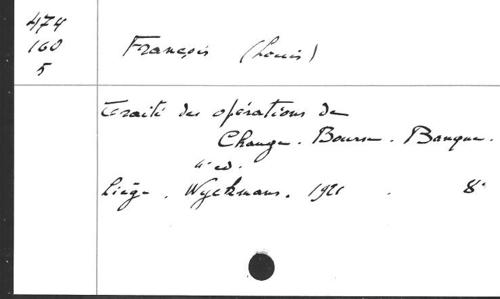 474
160
5
François (Louis)
Traité des opérations de
Change. Bourse. Banque.
éd.
Liège. Wyckmans. 1921. 8°